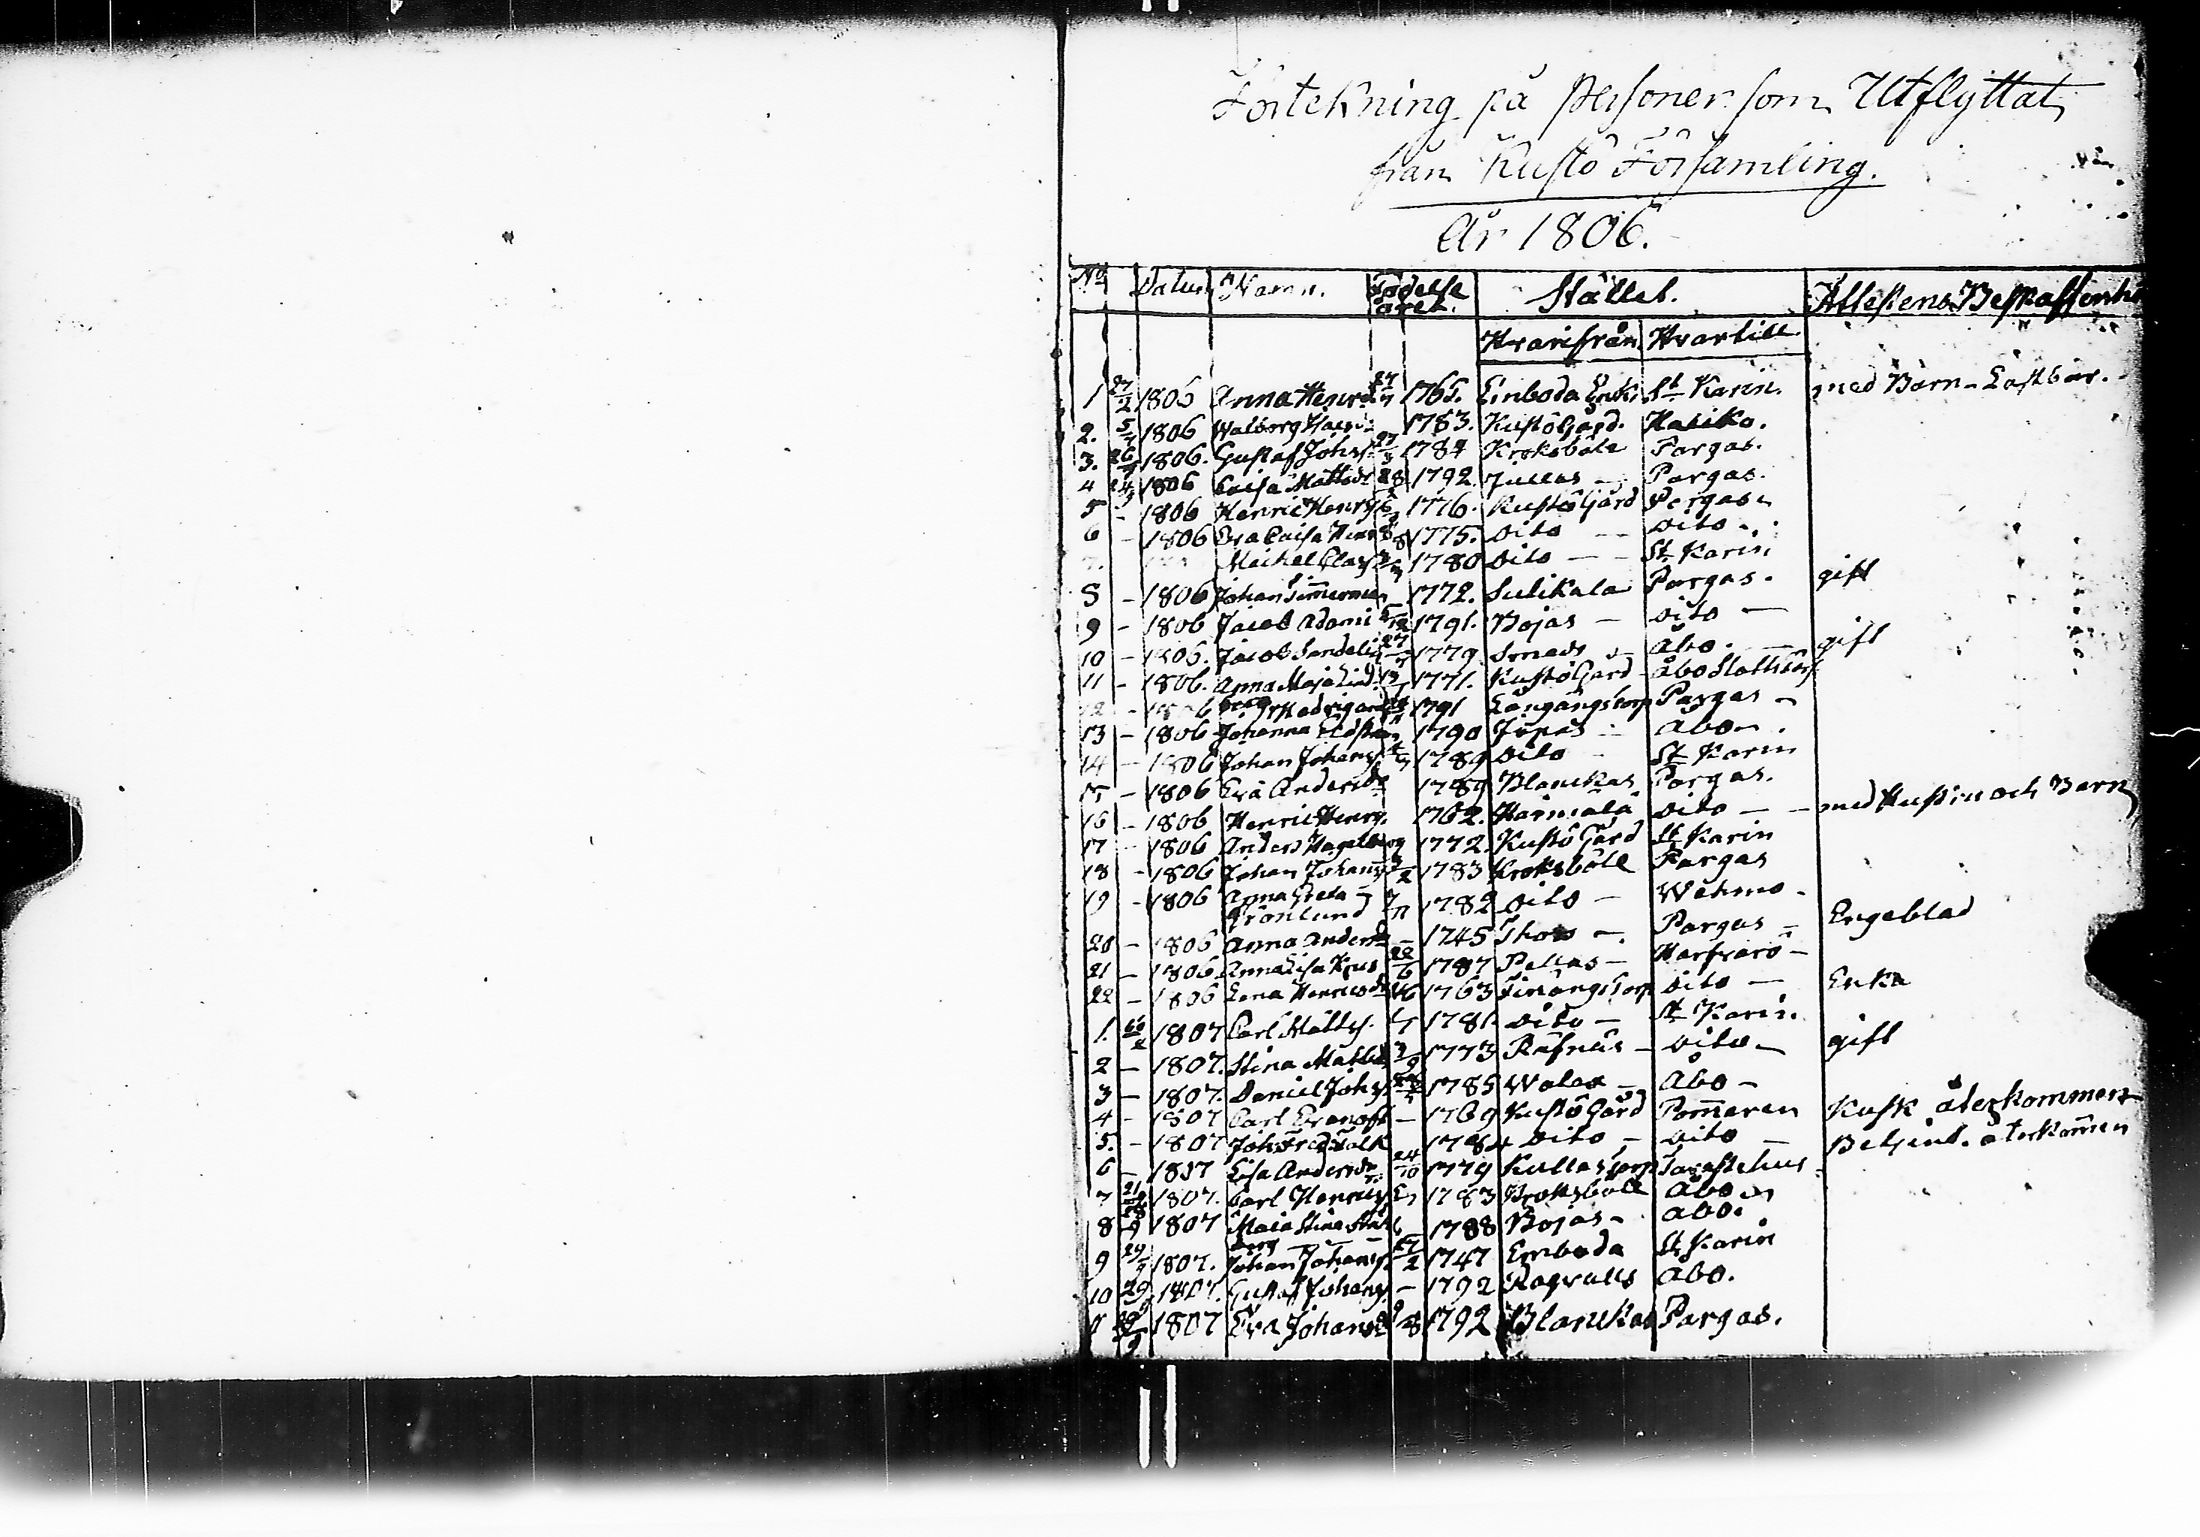 Förtekning på Personer som Utflyttat
från Kustö Församling.
År 1806.
No Datum Namn. Födelse året. Stället. Attestens Beskaffenhe
Hvarifrån Hvartill
1 27/2 1806 Anna Henrsd 27 1765. Enboda Enk. St Karin. med Barn
2. 5/4 1806 Walborg 1783. Kustö Gård. Haliko.
3. 26 1806. Gustaf Johs. 27/3 1784 Kroksböle Pargas.
4 24 1806 Caisa Mattsdr 28 1792. Jullas – Pargas.
5 – 1806 Henric Henrs 1776. Kustö Gård Pargas
6 – 1806 Eva Caisa Henr 8/8 1775. dito – – dito –
7. Michel Clas 1780 dito – – St Karin
8 – 1806 Johan Simmerman 1772. Sulikala Pargas. gift
9 – 1806 Jacob Adami 5/12 1791. Bojas – dito –
10 – 1806. Jacob Sandelin 27 1779. Smeds – Åbo. – gift
11 – 1806. Anna Maja Lind 1771. Kustö Gård – Åbo Slottsförs
12 – 1806 1791 Långångstorp Pargas –
13 – 1806 Johanna 1790 Jopas – Åbo –
14 – 1806 Johan Johans 1789 dito – St Karin
15 – 1806 Eva Andersdr 1789 Blanckas Pargas.
16 – 1806 Henric Henrs. 1762. Harmala dito – – med Hustru och Barn
17 – 1806 Anders Hagelberg 1772. Kustö Gård St Karin
18 – 1806 Johan Johans 1783 Kroksböle Pargas
19 – 1806 Anna Greta Grönlund 7/11 1782 dito – Wehmo –
20 – 1806 Anna Andersd – 1745 Thors –. Pargas – Engeblad
21 – 1806. Anna Lisa 22/6 1787 Pellas – Harfvarö –
22 – 1806 Lena Henricsdr 1763 torp dito – Enka
1. 1807 Carl Matts. 1781. dito – St Karin.
2 – 1807. Stina Mattsd 3/9 1773 Rafnäs – dito – gift
3 – 1807. Daniel Johs 1785 Walax – Åbo –
4 – 1807 Carl – 1769 Kustö Gård Pom̄eren Kusk återkommen
5. – 1807 Joh Falk 1784 dito – dito – Betjent. återkom̄en
6 – 1807 Lisa Andersdr 24/10 1779 Kullastorp Tavastehus
7 1807. Carl Henrics 1783 Kroksböle Åbo
8 28/9 1807 Maia Stina Stålberg 1788 Bojas – Åbo.
9 29 1807. Johan Johans 27/2 1747 Emboda St Karin
10 29 1807. Gustaf Johans. – 1792 Ragvalls Åbo.
11 29/9 1807 Eva Johansdr 1792 Blanckas Pargas.